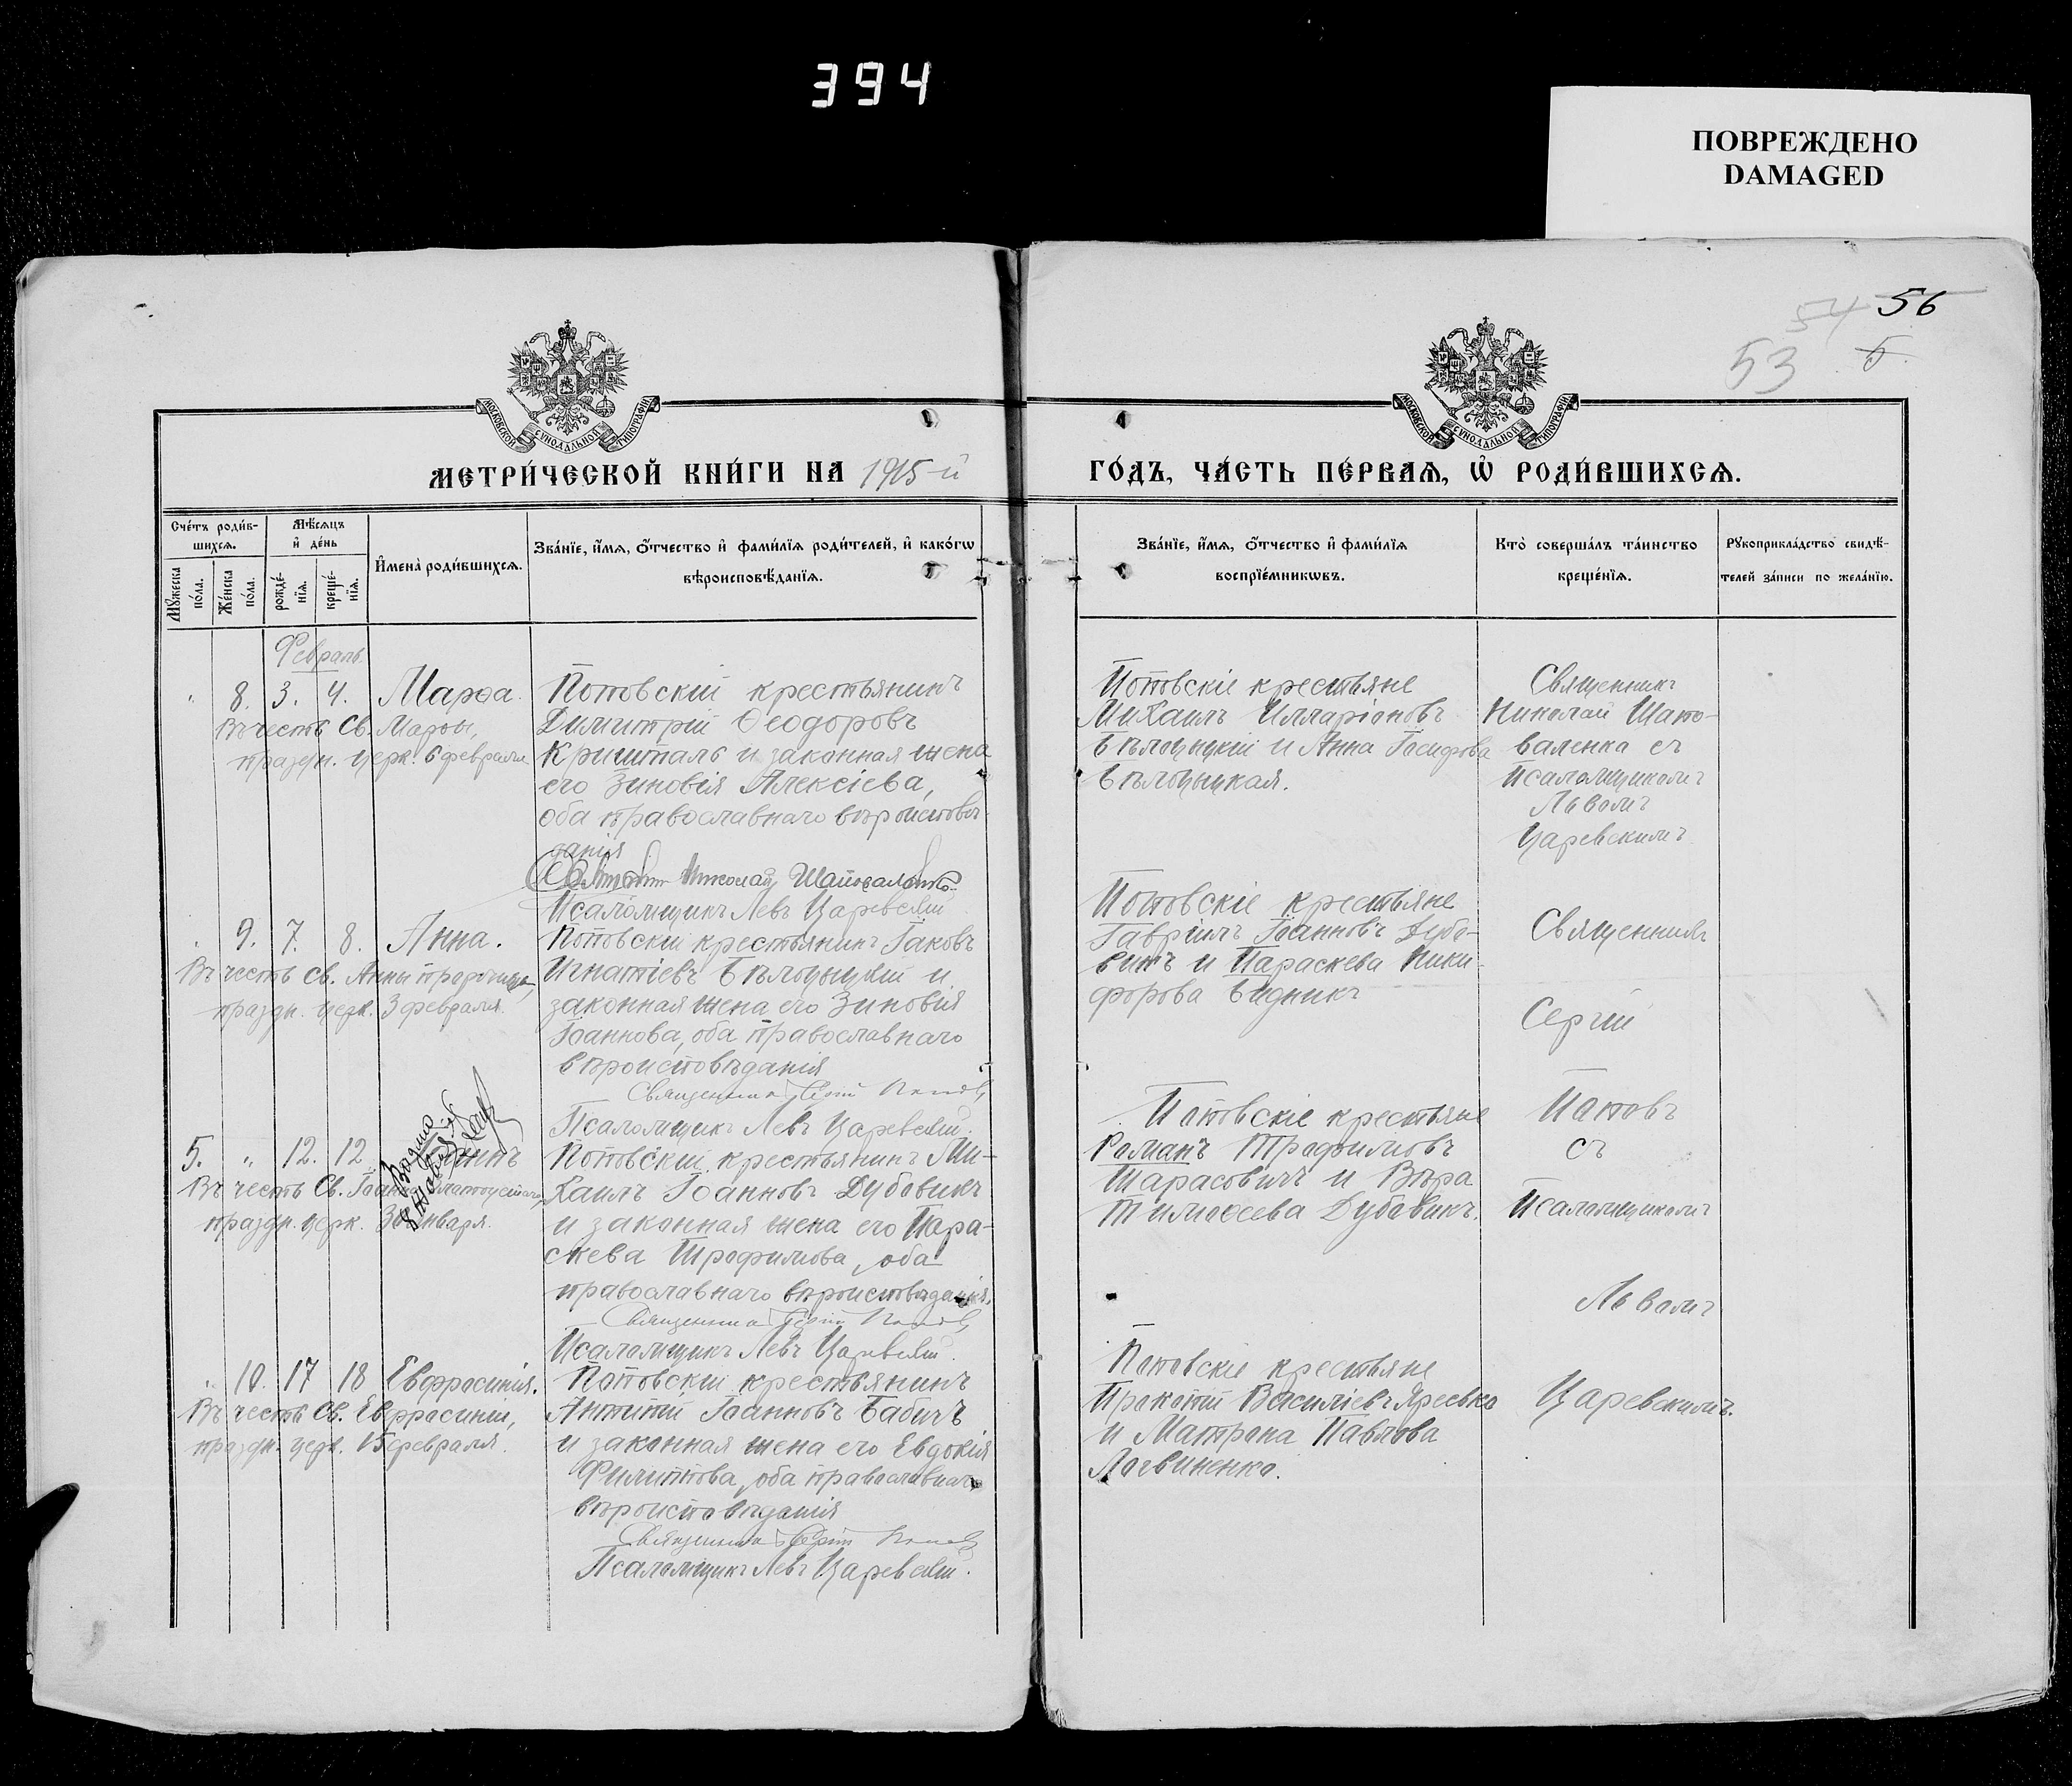 394
ПОВРЕЖДЕНО
DAMAGED
54 56
53 5
МОСКОВСКОЙ СѴНОДАЛЬНОЙ ТИПОГРАФІИ
МОСКОВСКОЙ СѴНОДАЛЬНОЙ ТИПОГРАФІИ
МЕТРИ́ЧЕСКОЙ КНИ́ГИ НА 1915-й
ГО́ДЪ, ЧА́СТЬ ПЕ́РВАѦ, Ѡ҆ РОДИ́ВШИХСѦ.
Сче́тъ роди́в-
шихсѧ.
Мꙋ́жеска по́ла.
Же́нска по́ла.
Мѣ́сѧцъ
и҆ де́нь
рожде́-
нїѧ.
креще́-
нїѧ.
И҆мена̀ роди́вшихсѧ.
Зва́нїе, и҆́мѧ, ѻ҆́тчество и҆ фами́лїѧ роди́телей, и҆ како́гѡ
вѣроисповѣ́данїѧ.
Зва́нїе, и҆́мѧ, ѻ҆́тчество и҆ фами́лїѧ
воспрїе́мникѡвъ.
Кто̀ соверша́лъ та́инство
креще́нїѧ.
Рꙋкоприкла́дство свидѣ́-
телей за́писи по жела́нїю.
Февраль
" 8. 3. 4. Марѳа.
Въ честь Св. Марѳы,
праздн. церк. 6 февраля
Поповскій крестьянинъ
Димитрій Ѳеодоровъ
Кришталь и законная жена
его Зиновія Алексіева,
оба православнаго вѣроисповѣ-
данія
Николай Шаповаленко
Псаломщикъ Левъ Царевскій
Поповскіе крестьяне
Михаилъ Илларіоновъ
Бѣлоцыцкій и Анна Іосифова
Бѣлоцыцкая.
Священникъ
Николай Шапо-
валенко съ
Псаломщикомъ
Львомъ
Царевскимъ
" 9. 7. 8. Анна.
Въ честь св. Анны пророчицы,
праздн. церк. 3 февраля.
Поповскій крестьянинъ Іаковъ
Игнатіевъ Бѣлоцыцкій и
законная жена его Зиновія
Іоаннова, оба православнаго
вѣроисповѣданія
Священникъ Сергій Поповъ
Псаломщикъ Левъ Царевскій.
Поповскіе крестьяне
Гавріилъ Іоанновъ Дубо-
викъ и Параскева Ники-
форова Бидникъ
Священникъ
Сергій
Поповъ
съ
Псаломщикомъ
Львомъ
Царевскимъ.
5. " 12. 12
Въ честь Св. Іоанна Златоустаго,
праздн. церк. 30 января.
Поповскій крестьянинъ Ми-
хаилъ Іоанновъ Дубовикъ
и законная жена его Пара-
скева Трофимова, оба
православнаго вѣроисповѣданія.
Священникъ Сергій Поповъ
Псаломщикъ Левъ Царевскій.
Поповскіе крестьяне
Романъ Трофимовъ
Тарасовичъ и Вѣра
Тимоѳеева Дубовикъ.
" 10. 17 18 Евфросинія.
Въ честь Св. Евфросиніи,
праздн. церк. 15 февраля.
Поповскій крестьянинъ
Антипій Іоанновъ Бабичъ
и законная жена его Евдокія
Филиппова, оба православнаго
вѣроисповѣданія
Священникъ Сергій Поповъ
Псаломщикъ Левъ Царевскій.
Поповскіе крестьяне
Прокопій Василіевъ Яресько
и Матрона Павлова
Логвиненко.